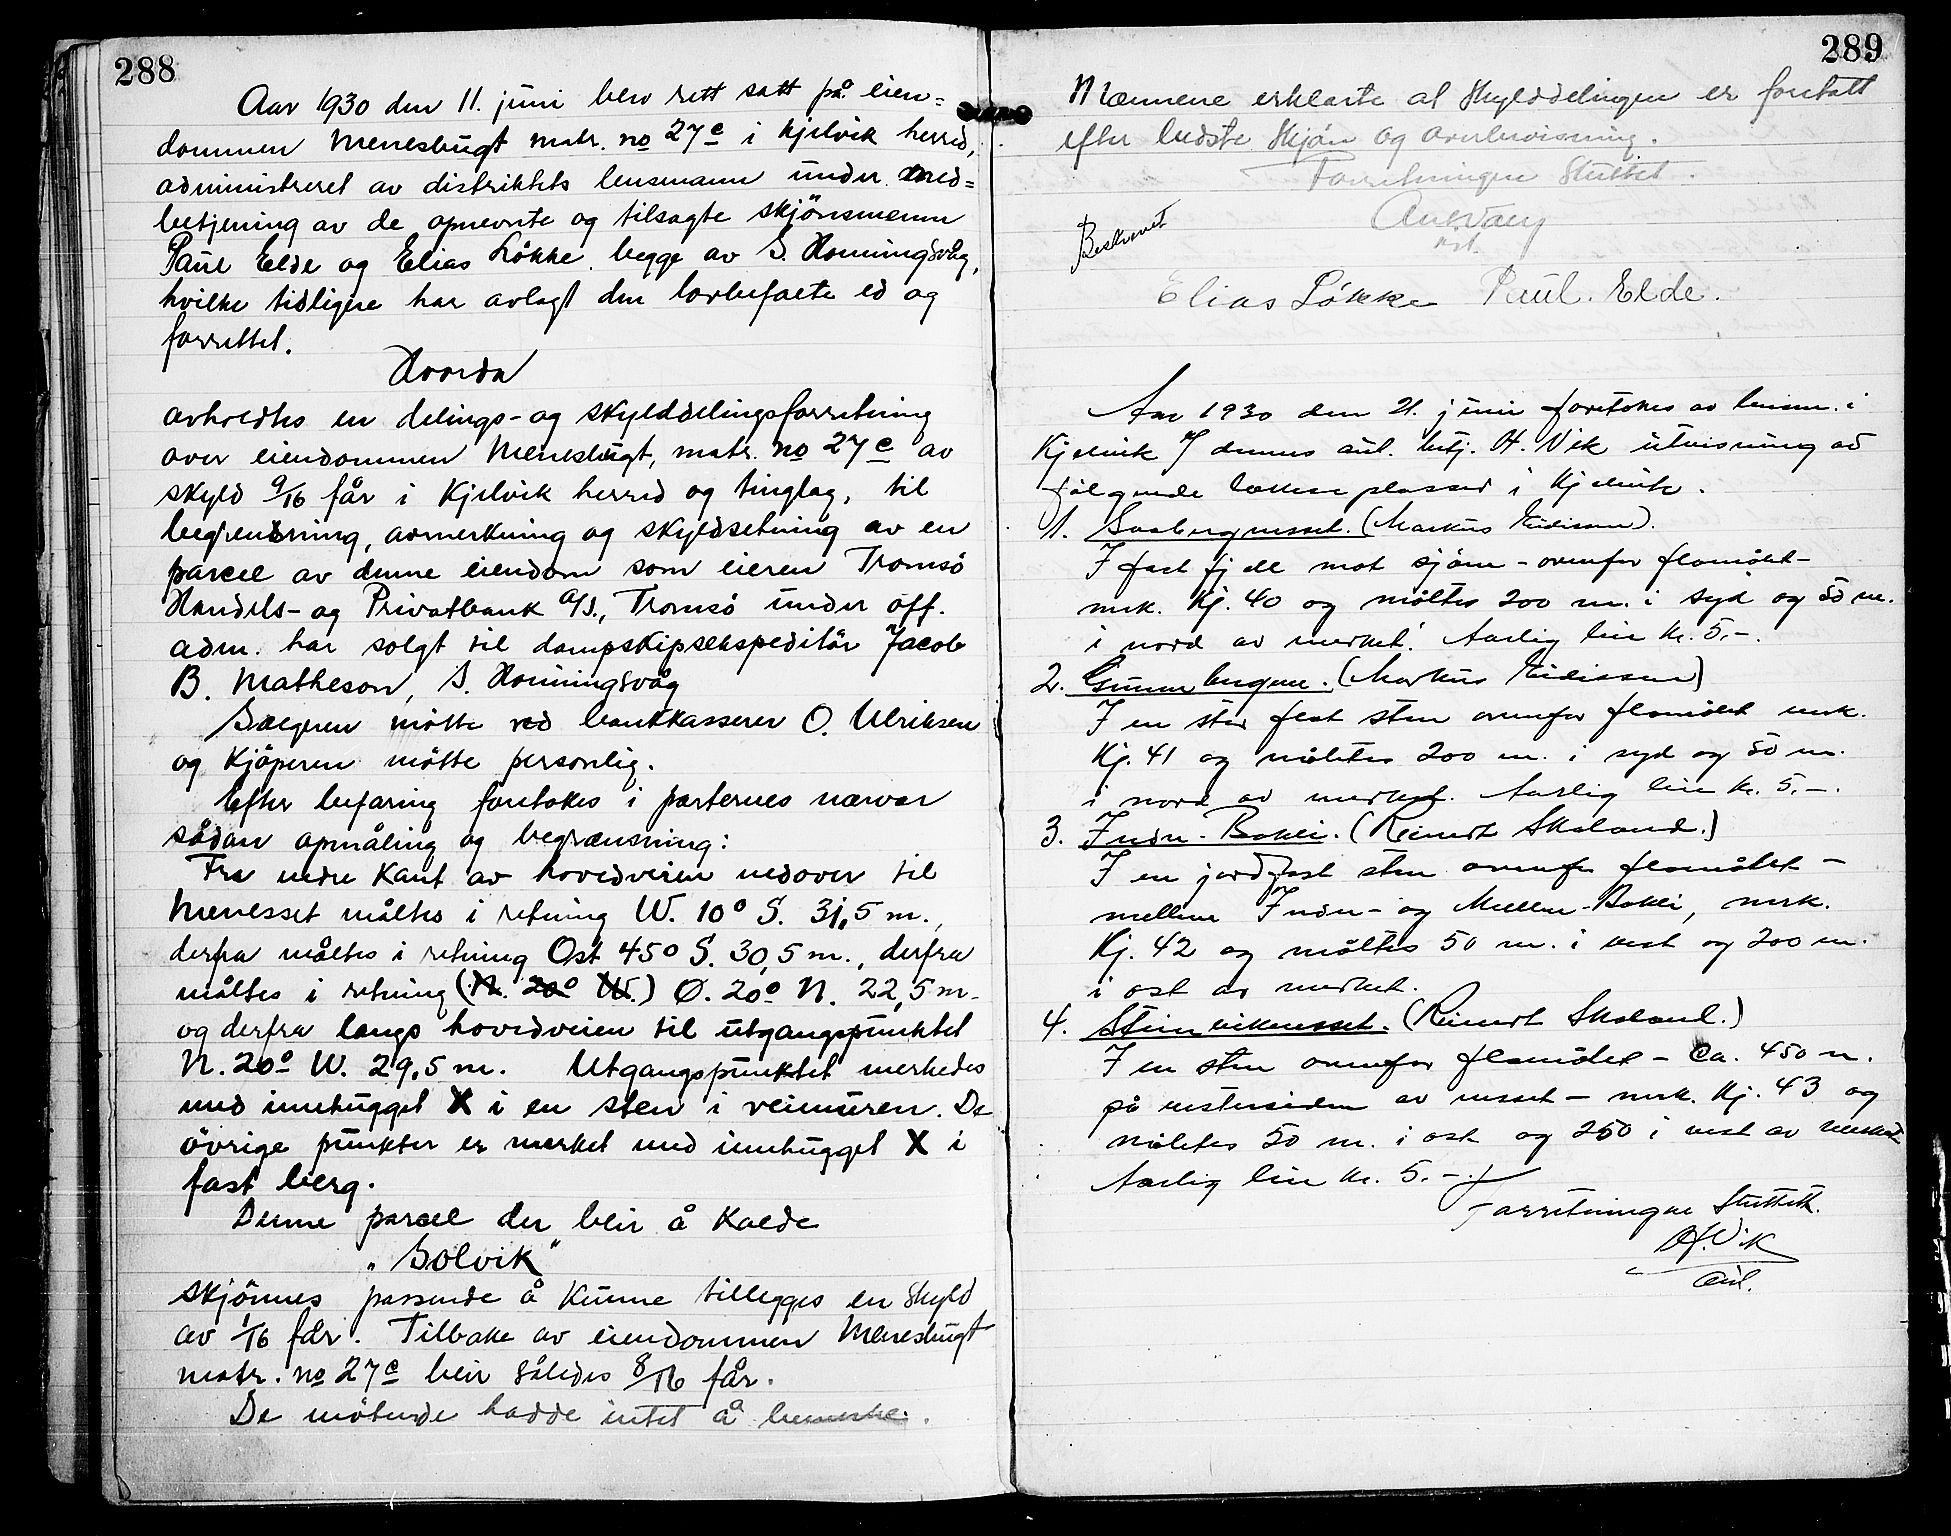 288
Aar 1930 den 11. juni blev rett satt på eien=
dommen Menesbugt matr. no 27c i Kjelvik herred,
administreret av distriktets lensmann under med=
betjening av de opnevnte og tilsagte skjönsmenn
Paul Elde og Elias Lökke begge av S. Honningsvåg,
hvilke tidligere har avlagt den lovbefalte ed og
forrettet.
Hvorda
avholdtes en delings- og skylddelingsforretning
over eiendommen Menesbugt, matr. no 27c av
skyld 9/16 får i Kjelvik herred og tinglag, til
begrensning, avmerkning og skyldsetning av en
parcel av denne eiendom som eieren Tromsö
Handels- og Privatbank A/S., Tromsö under off.
adm. har solgt til dampskipsekspeditör Jacob
B. Matheson, S. Honningsvåg
Sælgeren mötte ved bankkasserer O. Ulriksen
og Kjöperen mötte personlig.
Efter befaring foretokes i parternes nærvær
sådan opmåling og begrænsning:
Fra nedre Kant av hovedveien nedover til
Menesset måltes i retning W. 10° S. 31,5 m.,
derfra måltes i retning Ost 45° S. 30,5 m., derfra
måltes i retning (N. 20° W.) Ø. 20° N. 22,5 m.
og derfra langs hovedveien til utgangspunktet
N. 20° W. 29,5 m. Utgangspunktet merkedes
med innhugget X i en sten i veimuren. De
övrige punkter er merket med innhugget X i
fast berg.
Denne parcel der blir å Kalde
"Solvik"
skjönnes passende å Kunne tillegges en skyld
av 1/16 får. Tilbake av eiendommen Menesbugt
matr. no 27c blir således 8/16 får.
De mötende hadde intet å bemerke.
289
Mennene erklærte at Skylddelingen er foretatt
efter bedste Skjön og overbevisning.
Forretningen Sluttet.
Beskrevet
Elias Lökke Paul. Elde.
Aar 1930 den 21. juni foretokes av lensm. i
Kjelvik v/ dennes aut. betj. H. Vik utvisning av
fölgende lakseplasser i Kjelvik.
1. (Markus Eidissen).
I fast fjell mot sjöen - ovenfor flomålet -
mrk. Kj. 40 og måltes 200 m. i syd og 50 m.
i nord av merket. Aarlig leie kr. 5,-.
2. (Markus Eidissen)
I en stor flat sten ovenfor flomålet mrk.
Kj. 41 og måltes 200 m. i syd og 50 m.
i nord av merket. Aarlig leie kr. 5,-.
3. Indre-Bakli. (Reinert Skoland.)
I en jordfast sten ovenfor flomålet -
mellem Indre- og Mellem-Bakli, mrk.
Kj. 42 og måltes 50 m. i vest og 200 m.
i ost av merket.
4. Steinviknesset. (Reinert Skoland.)
I en sten ovenfor flomålet - ca. 450 m.
på vestersiden av nesset - mrk. Kj. 43 og
måltes 50 m. i ost og 250 i vest av merket
Aarlig leie kr. 5.-
Forretningen Sluttet.
H. Vik
aut.